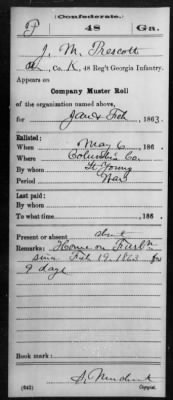 (Confederate.)
P 48 Ga.
J. M. Prescott
Co. K, 48 Reg't Georgia Infantry.
Appears on
Company Muster Roll
of the organization named above,
for Jan & Feb, 1863.
Enlisted:
When May 6, 186 .
Where Columbia Co.
By whom Young
Period War
Last paid:
By whom
To what time , 186 .
Present or absent absent
Remarks: Home on
since Feb 19, 1863 for
9 days
Book mark:
(642) Copyist.